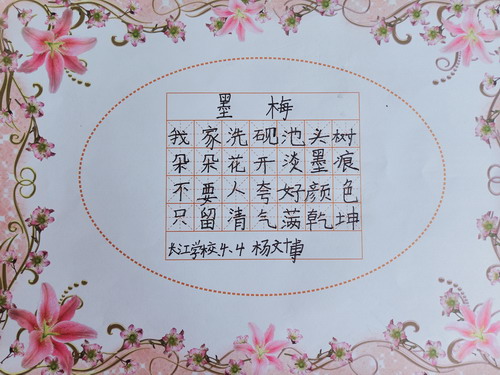 墨梅
我家洗砚池头树
朵朵花开淡墨痕
不要人夸好颜色
只留清气满乾坤
长江学校4、4 杨文博